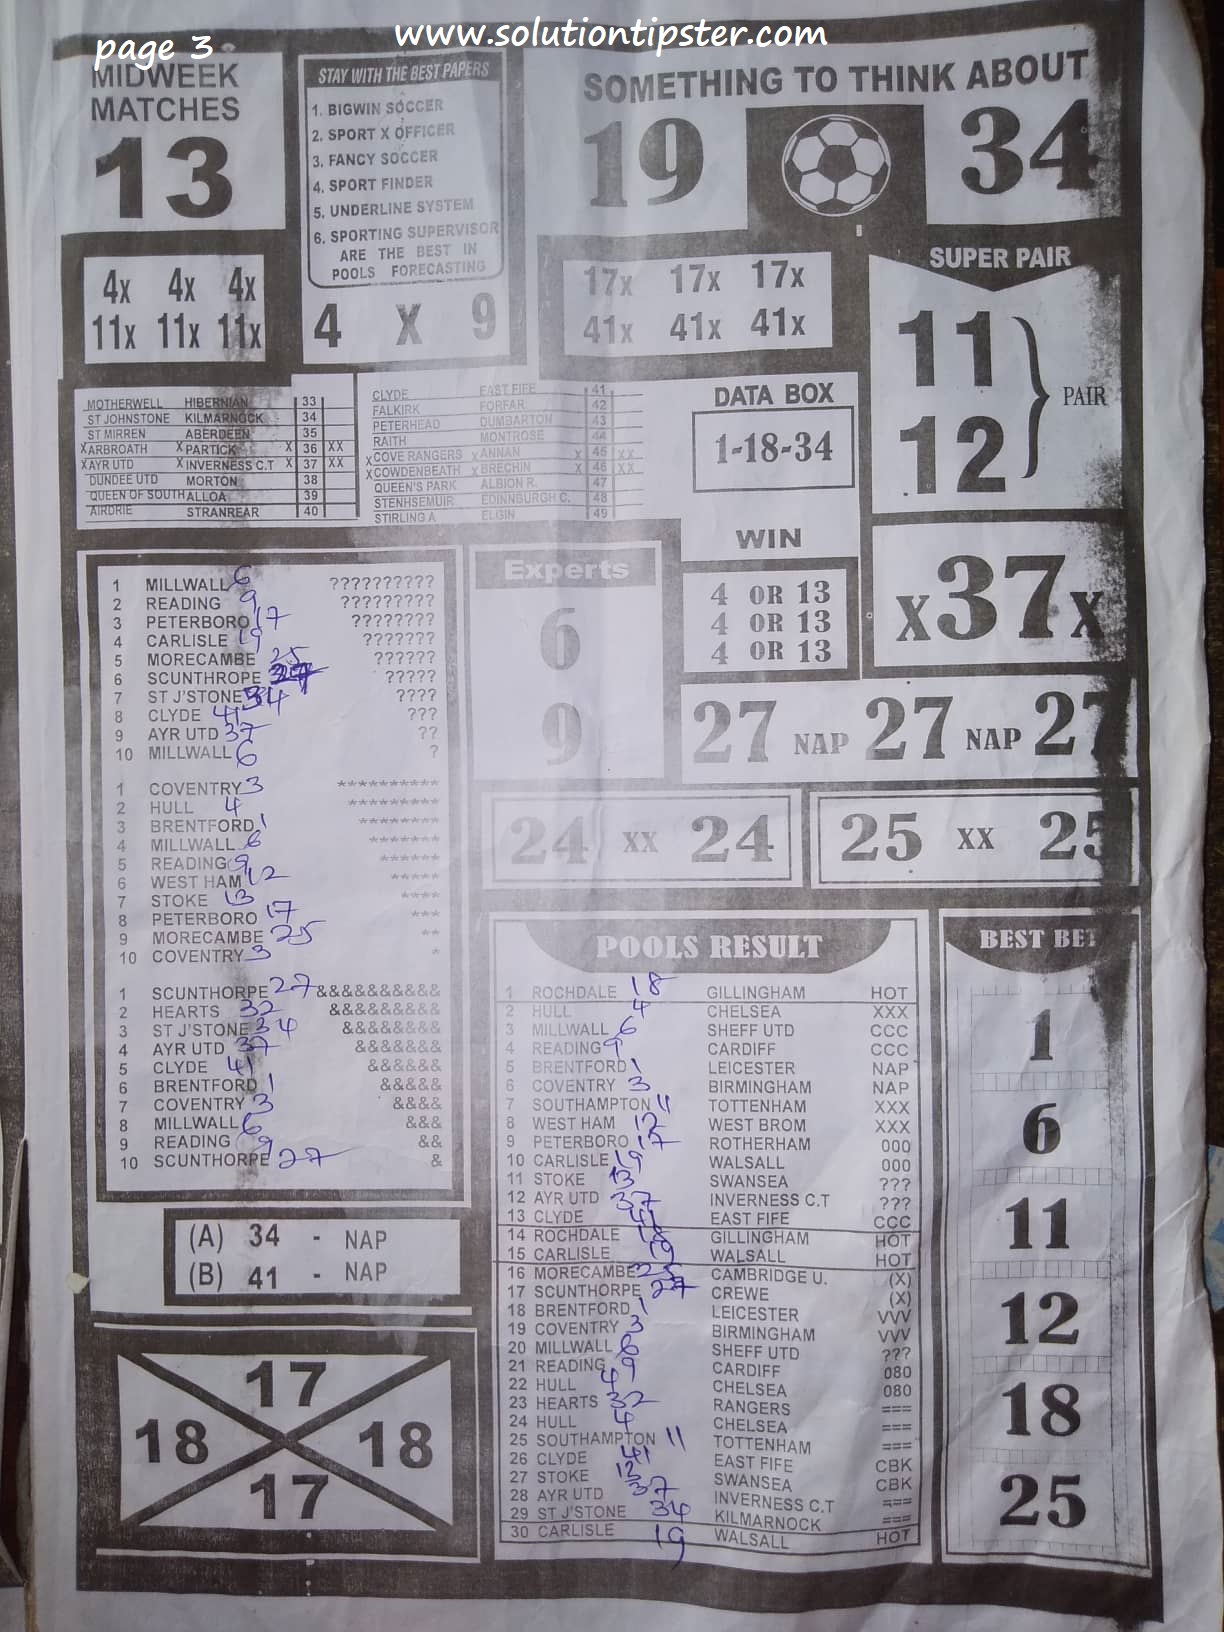 www.solutiontipster.com
page 3
MIDWEEK
MATCHES
13
STAY WITH THE BEST PAPERS
1. BIGWIN SOCCER
2. SPORT X OFFICER
3. FANCY SOCCER
4. SPORT FINDER
5. UNDERLINE SYSTEM
6. SPORTING SUPERVISOR
ARE THE BEST IN
POOLS FORECASTING
4 X 9
SOMETHING TO THINK ABOUT
19 34
4x 4x 4x
11x 11x 11x
17x 17x 17x
41x 41x 41x
SUPER PAIR
11
12
PAIR
MOTHERWELL HIBERNIAN 33
ST JOHNSTONE KILMARNOCK 34
ST MIRREN ABERDEEN 35
X ARBROATH X PARTICK X 36 XX
X AYR UTD X INVERNESS C.T X 37 XX
DUNDEE UTD MORTON 38
QUEEN OF SOUTH ALLOA 39
AIRDRIE STRANREAR 40
CLYDE EAST FIFE 41
FALKIRK FORFAR 42
PETERHEAD DUMBARTON 43
RAITH MONTROSE 44
X COVE RANGERS X ANNAN X 45 XX
X COWDENBEATH X BRECHIN X 46 XX
QUEEN'S PARK ALBION R. 47
STENHSEMUIR EDINNBURGH C. 48
STIRLING A ELGIN 49
DATA BOX
1-18-34
WIN
4 OR 13
4 OR 13
4 OR 13
X37X
1 MILLWALL 6 ??????????
2 READING 9 ?????????
3 PETERBORO 17 ????????
4 CARLISLE 19 ???????
5 MORECAMBE 25 ??????
6 SCUNTHROPE 27 ?????
7 ST J'STONE 34 ????
8 CLYDE 41 ???
9 AYR UTD 37 ??
10 MILLWALL 6 ?
1 COVENTRY 3 **********
2 HULL 4 *********
3 BRENTFORD 1 ********
4 MILLWALL 6 *******
5 READING 9 ******
6 WEST HAM 12 *****
7 STOKE 13 ****
8 PETERBORO 17 ***
9 MORECAMBE 25 **
10 COVENTRY 3 *
1 SCUNTHORPE 27 &&&&&&&&&&
2 HEARTS 32 &&&&&&&&&
3 ST J'STONE 34 &&&&&&&&
4 AYR UTD 37 &&&&&&&
5 CLYDE 41 &&&&&&
6 BRENTFORD 1 &&&&&
7 COVENTRY 3 &&&&
8 MILLWALL 6 &&&
9 READING 9 &&
10 SCUNTHORPE 27 &
Experts
6
9
27 NAP 27 NAP 27
24 XX 24
25 XX 25
(A) 34 - NAP
(B) 41 - NAP
17
18 18
17
POOLS RESULT
1 ROCHDALE 18 GILLINGHAM HOT
2 HULL 4 CHELSEA XXX
3 MILLWALL 6 SHEFF UTD CCC
4 READING 9 CARDIFF CCC
5 BRENTFORD 1 LEICESTER NAP
6 COVENTRY 3 BIRMINGHAM NAP
7 SOUTHAMPTON 11 TOTTENHAM XXX
8 WEST HAM 12 WEST BROM XXX
9 PETERBORO 17 ROTHERHAM 000
10 CARLISLE 19 WALSALL 000
11 STOKE 13 SWANSEA ???
12 AYR UTD 37 INVERNESS C.T ???
13 CLYDE EAST FIFE CCC
14 ROCHDALE GILLINGHAM HOT
15 CARLISLE WALSALL HOT
16 MORECAMBE 25 CAMBRIDGE U. (X)
17 SCUNTHORPE 27 CREWE (X)
18 BRENTFORD 1 LEICESTER VVV
19 COVENTRY 3 BIRMINGHAM VVV
20 MILLWALL 6 SHEFF UTD ???
21 READING 9 CARDIFF 080
22 HULL 4 CHELSEA 080
23 HEARTS 32 RANGERS ===
24 HULL 4 CHELSEA ===
25 SOUTHAMPTON 11 TOTTENHAM ===
26 CLYDE 41 EAST FIFE CBK
27 STOKE 13 SWANSEA CBK
28 AYR UTD 37 INVERNESS C.T ===
29 ST J'STONE 34 KILMARNOCK ===
30 CARLISLE 19 WALSALL HOT
BEST BET
1
6
11
12
18
25